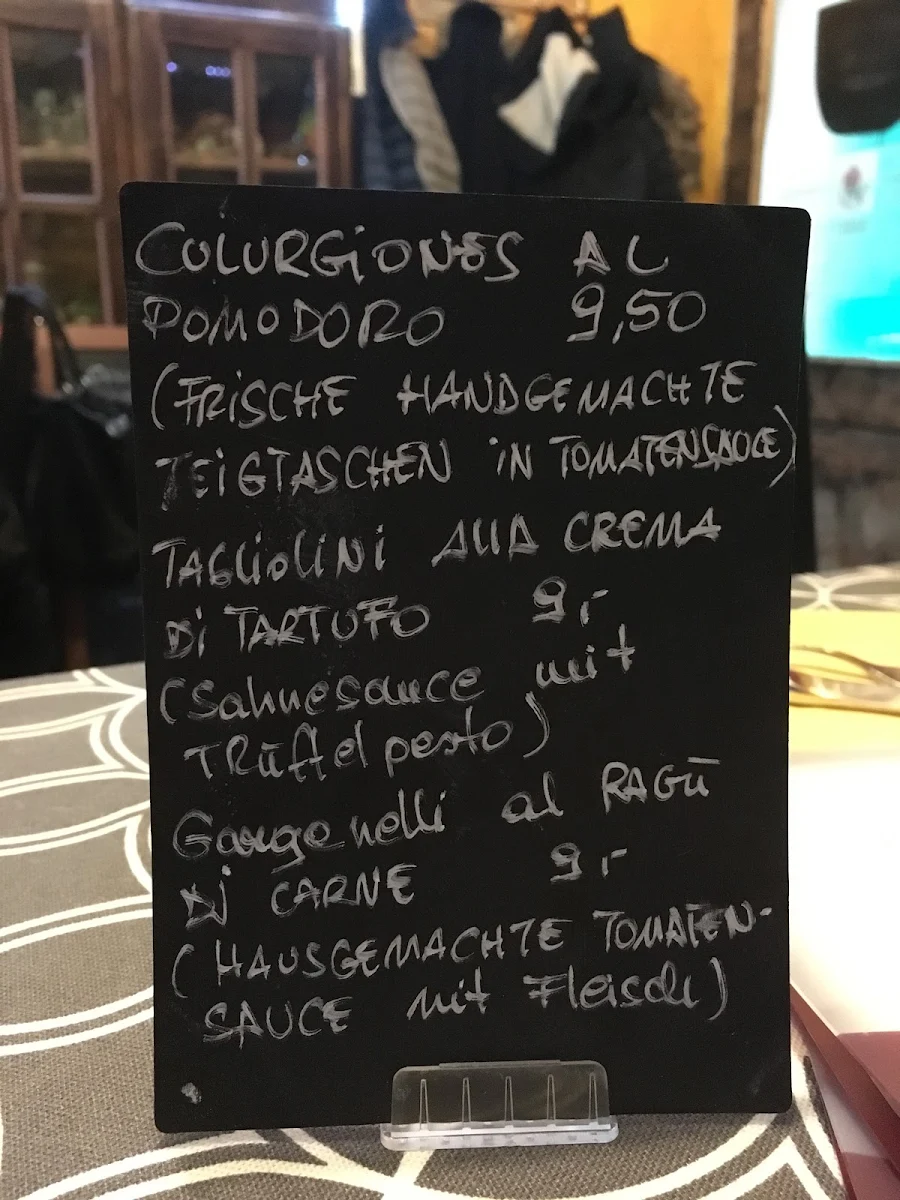 CULURGIONES AL
POMODORO 9,50
(FRISCHE HANDGEMACHTE
TEIGTASCHEN IN TOMATENSAUCE)
TAGLIOLINI ALLA CREMA
DI TARTUFO 9,-
(Sahnesauce mit
TRÜFFEL pesto)
Gargenelli al RAGÙ
DI CARNE 9,-
(HAUSGEMACHTE TOMATEN-
SAUCE mit Fleisch)